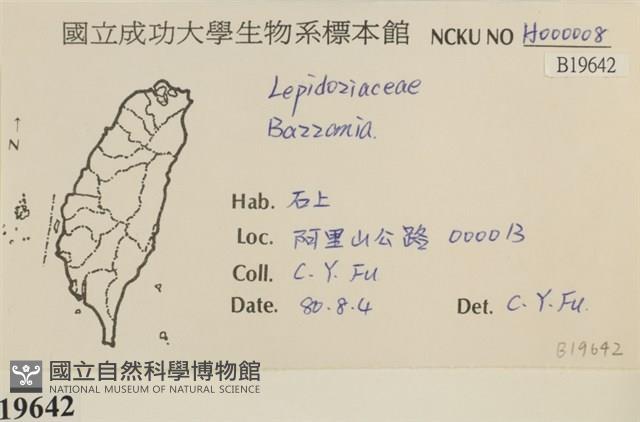 國立成功大學生物系標本館 NCKU NO H000008
B19642
Lepidoziaceae
Bazzania.
N
Hab. 石上
Loc. 阿里山公路 000013
Coll. C. Y. Fu
Date. 80.8.4 Det. C. Y. Fu.
B19642
國立自然科學博物館
NATIONAL MUSEUM OF NATURAL SCIENCE
19642